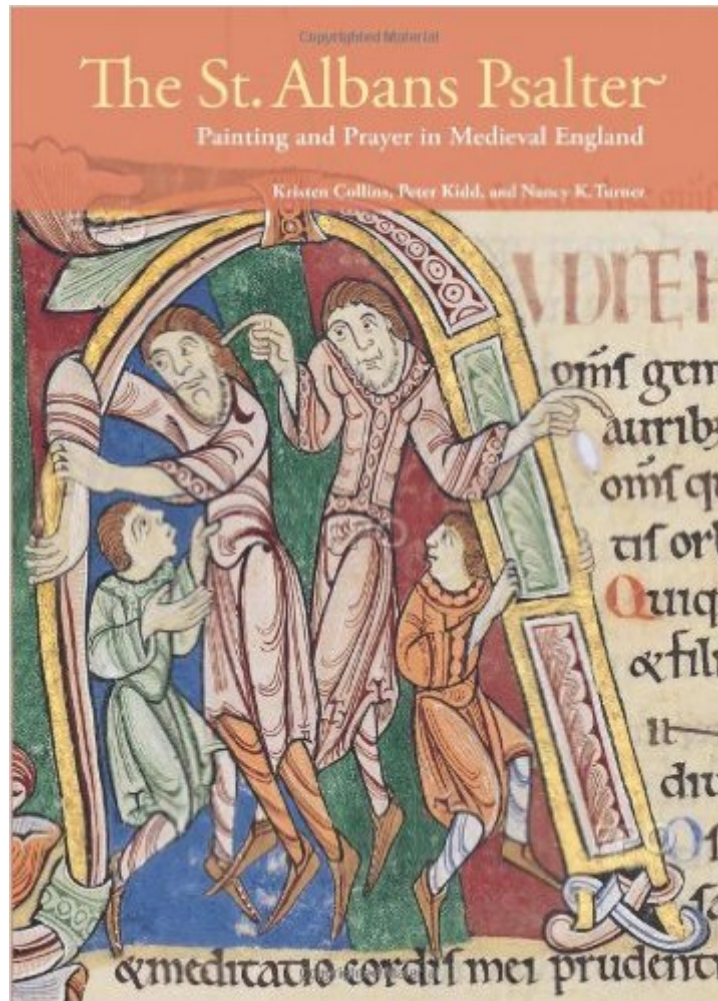 Copyrighted Material
The St. Albans Psalter
Painting and Prayer in Medieval England
Kristen Collins, Peter Kidd, and Nancy K. Turner
VDITE H
om̄s gem
aurib
om̄s q
tis orb
Quiq
& fili
it
diu
&meditatio cordis mei prudent